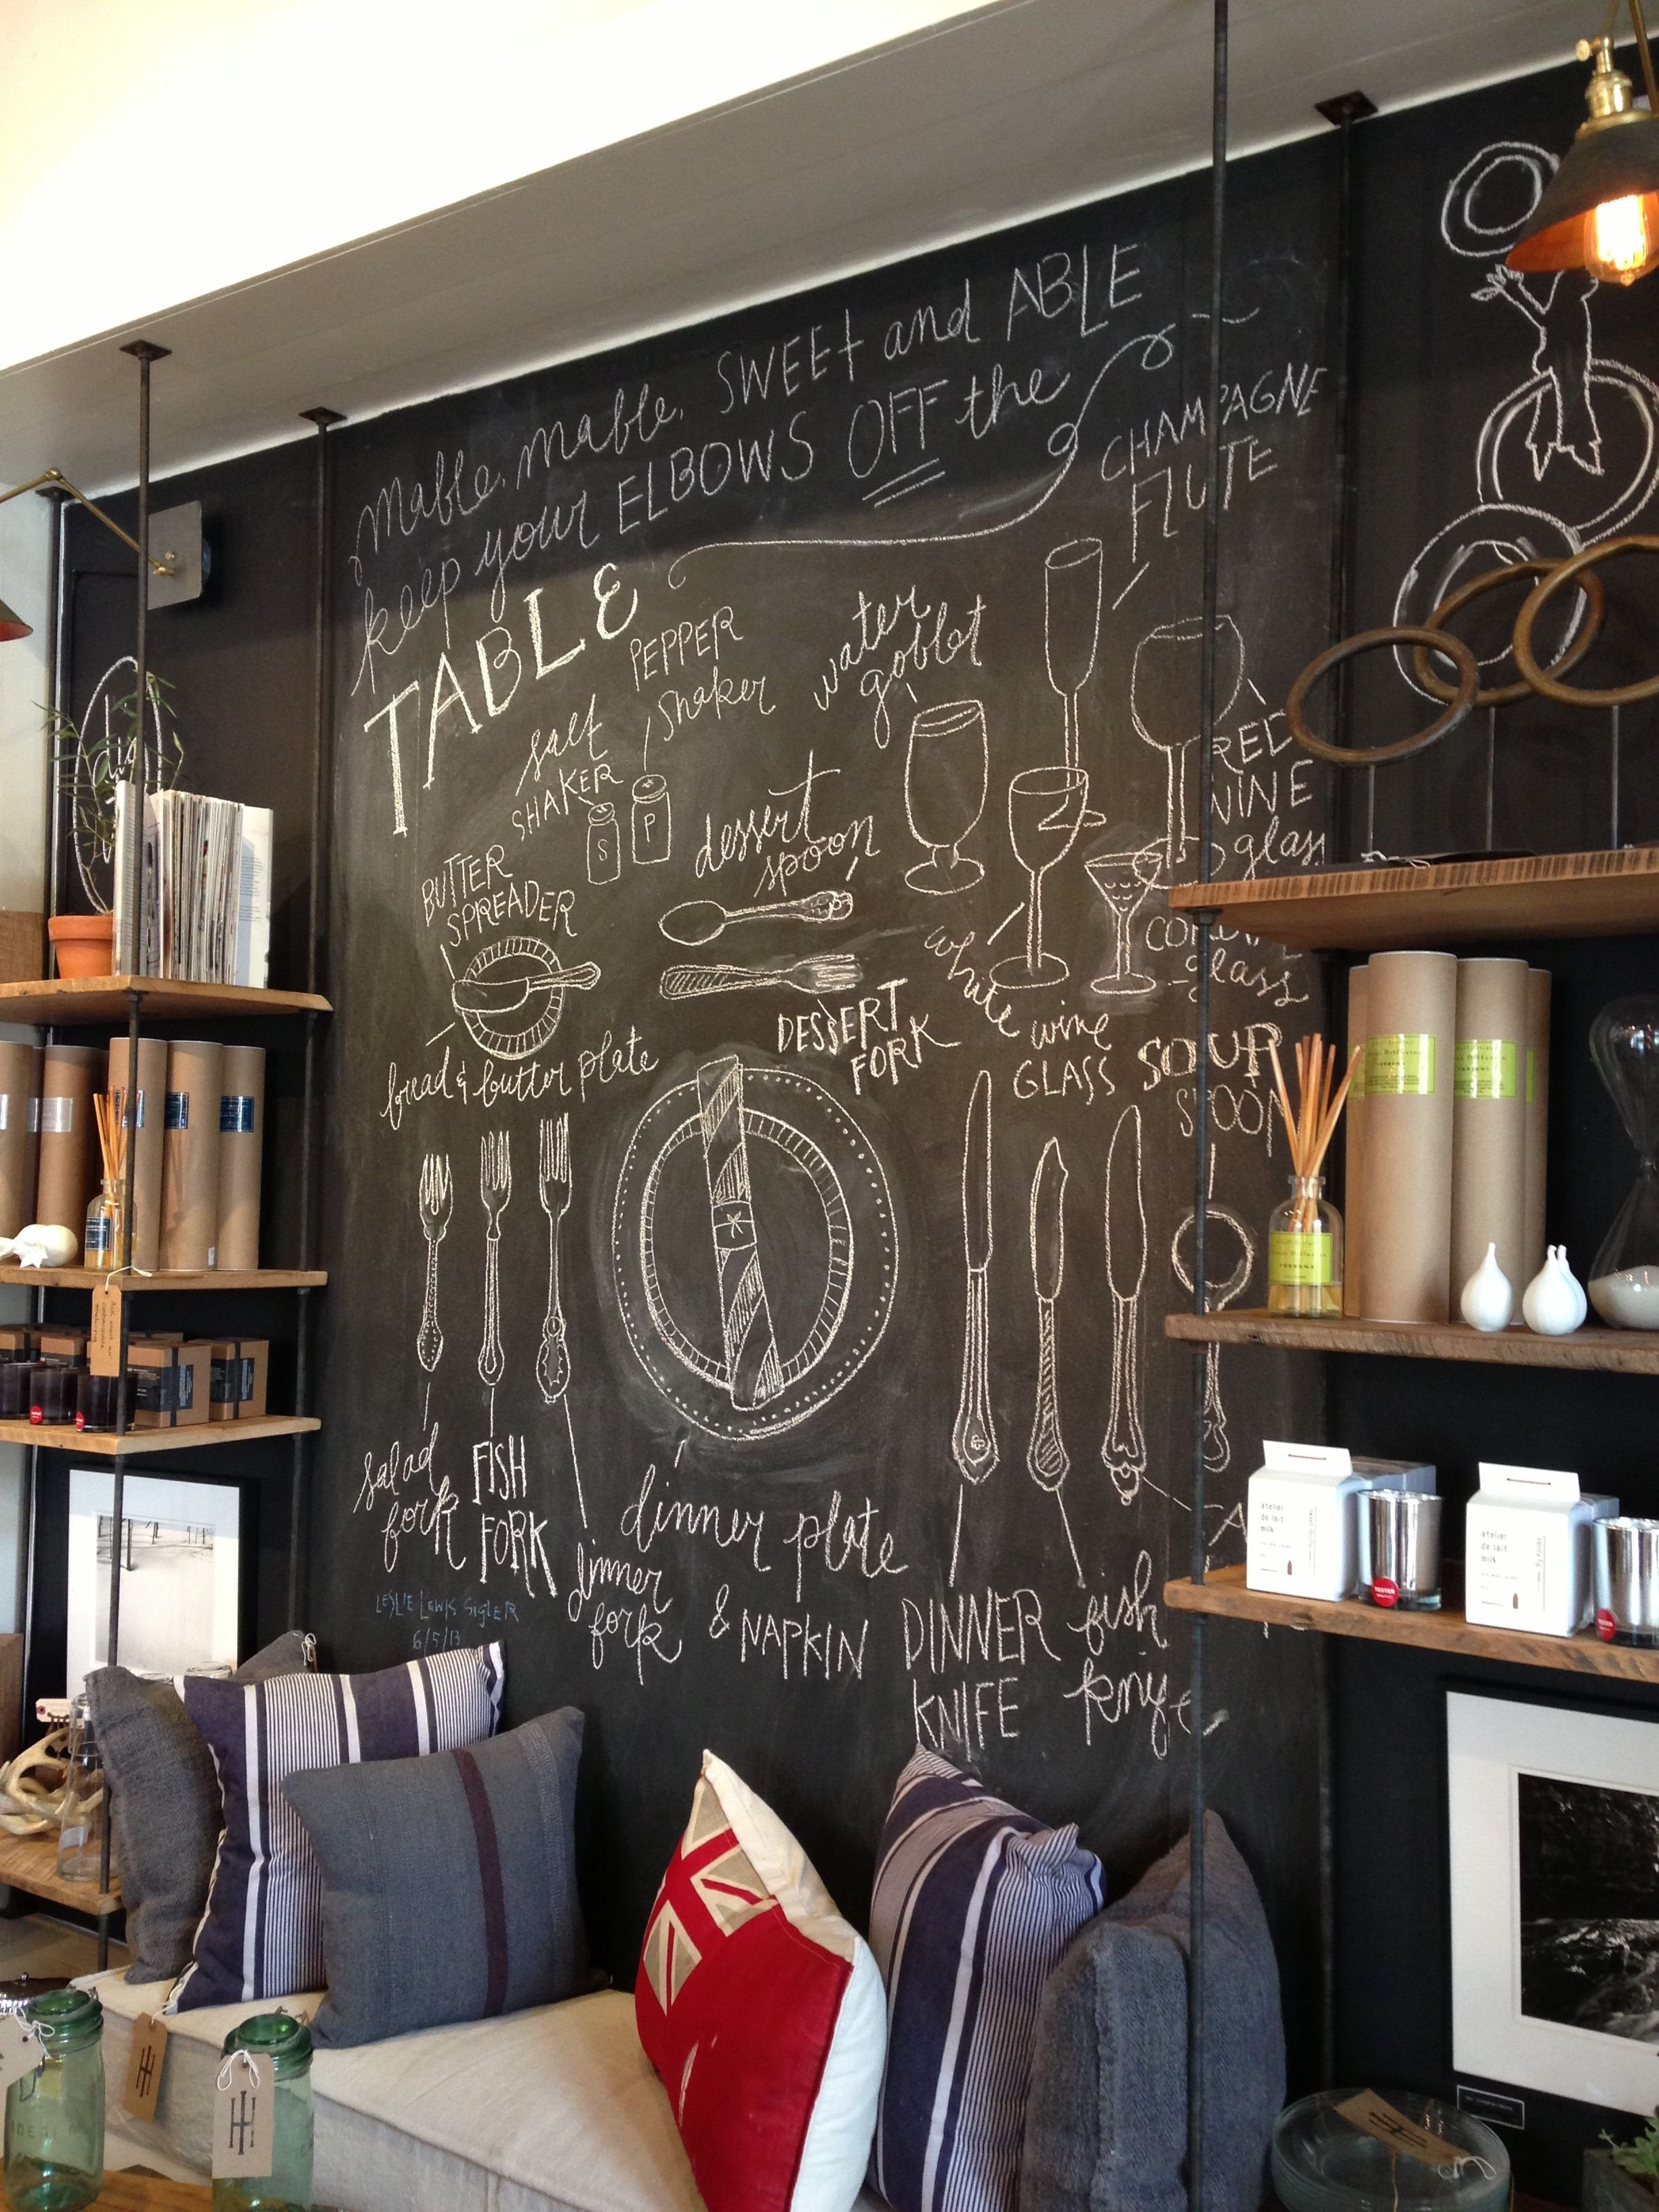 mable, mable, SWEEt and ABLE
keep your ELBOWS OFF the
TABLE
PEPPER
shaker
salt
SHAKER
S
P
water
goblet
CHAMPAGNE
FLUTE
RED
WINE
glass
dessert
spoon
BUTTER
SPREADER
bread & butter plate
DESSERT
FORK
white wine
GLASS
glass
SOUP
SPOON
salad
fork
FISH
FORK
dinner
fork
dinner plate
& NAPKIN
DINNER
KNIFE
fish
knife
LESLIE LEWIS SIGLER
6/5/13
atelier
du lait
milk
atelier
du lait
milk
TESTER
H
H